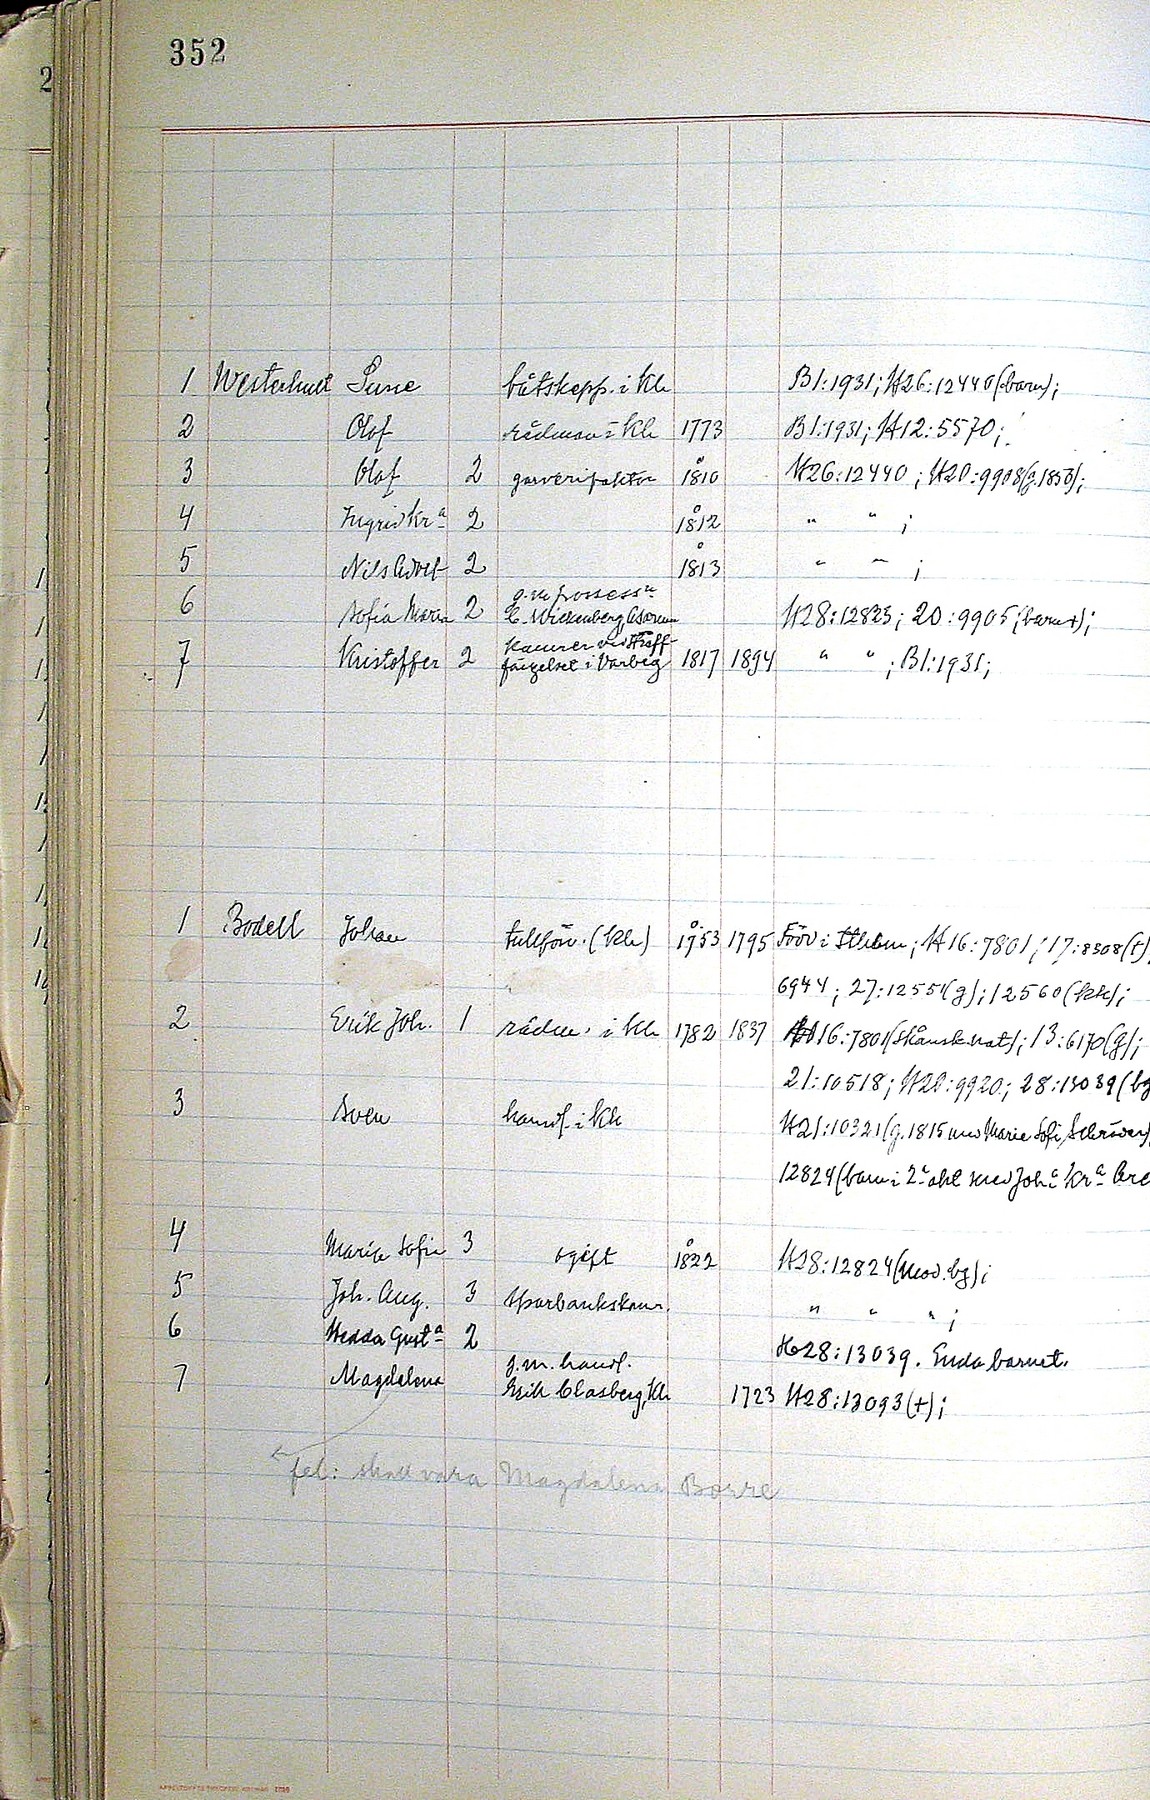 352
1 Westerhult Sune båtskepp. i Kh B1:1931; H26:12440 (barn);
2 Olof rådman i Kh 1773 B1:1931; H12:5570;
3 Olof 2 garverifaktor 1810 H26:12440; H20:9908 (g.1850);
4 Ingrid Kra 2 1812 " " ;
5 Nils Adolf 2 1813 " " ;
g.m. possessn
6 Sofia Maria 2 C. Wickenberg H28:12823; 20:9905; (barn+);
kamrer vid Straff-
7 Kristoffer 2 fängelset i Varberg 1817 1894 " " ; B1:1931;
1 Bodell Johan tullförv. (Kh) 1753 1795 Född i Sthlm; H16:7801; 17:8308 (+)
6944; 27:12551 (g); 12560 (kk);
2 Erik Joh. 1 rådm. i Kh 1782 1837 H16:7801 (Skånsk nat); 13:6170 (g);
21:10518; H20:9920; 28:13039 (bg
3 Sven handl. i Kh H21:10321 (g.1815 med Marie Sofi
12824 (barn i 2a äkt. med Joha Kra
4 Maria Sofia 3 ogift 1822 H28:12824 (Mod. bg);
5 Joh. Aug. 3 Sparbankskam. " " " ;
6 Hedda Gusta 2 H28:13039. Enda barnet.
g.m. handl.
7 Magdalena Erik Clasberg, Kh 1723 H28:13093 (+);
fel: skall vara Magdalena Borre